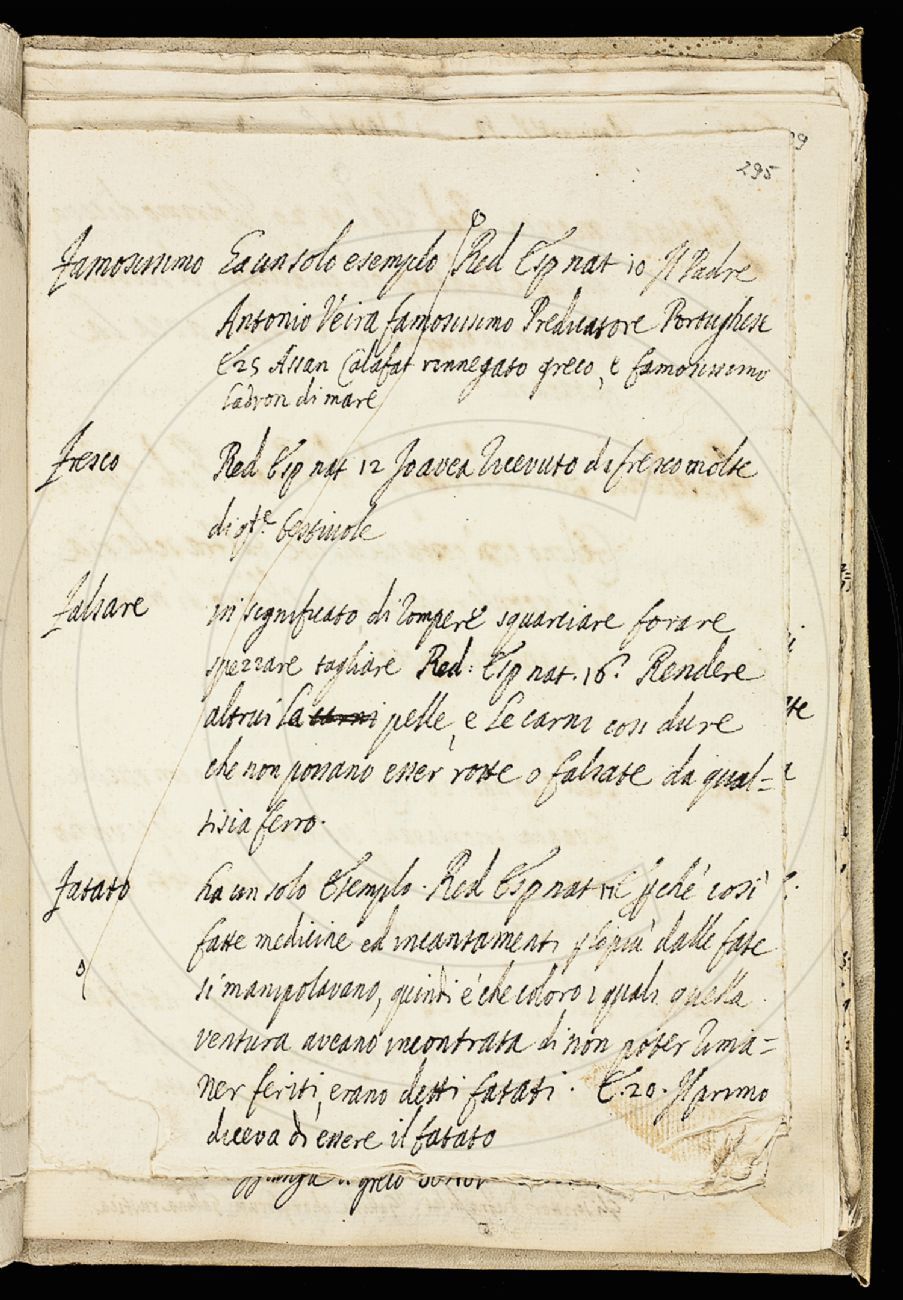 295
Famosissimo Ha un solo esempio Red Esp nat 10 Il Padre
Antonio Veira famosissimo Predicatore Portughese
E 25 Assan Calafat rinnegato greco, e famosissimo
ladron di mare
Fresco Red Esp nat 12 Io avea ricevuto di fresco molte
di qste bestiuole
Falsare in significato di rompere squarciare forare
spezzare tagliare Red: Esp nat. 16. Rendere
altrui la carni pelle, e le carni così dure
che non possano esser rotte o falsate da qual=
sisia ferro.
Fatato ha un solo Esempio. Red Esp nat pché così
fatte medicine ed incantamenti p lo più dalle fate
si manipolavano, quindi è che coloro i quali quella
ventura aveano incontrata di non poter rima=
ner feriti, erano detti fatati. E. 20. Il primo
diceva di essere il fatato
greco